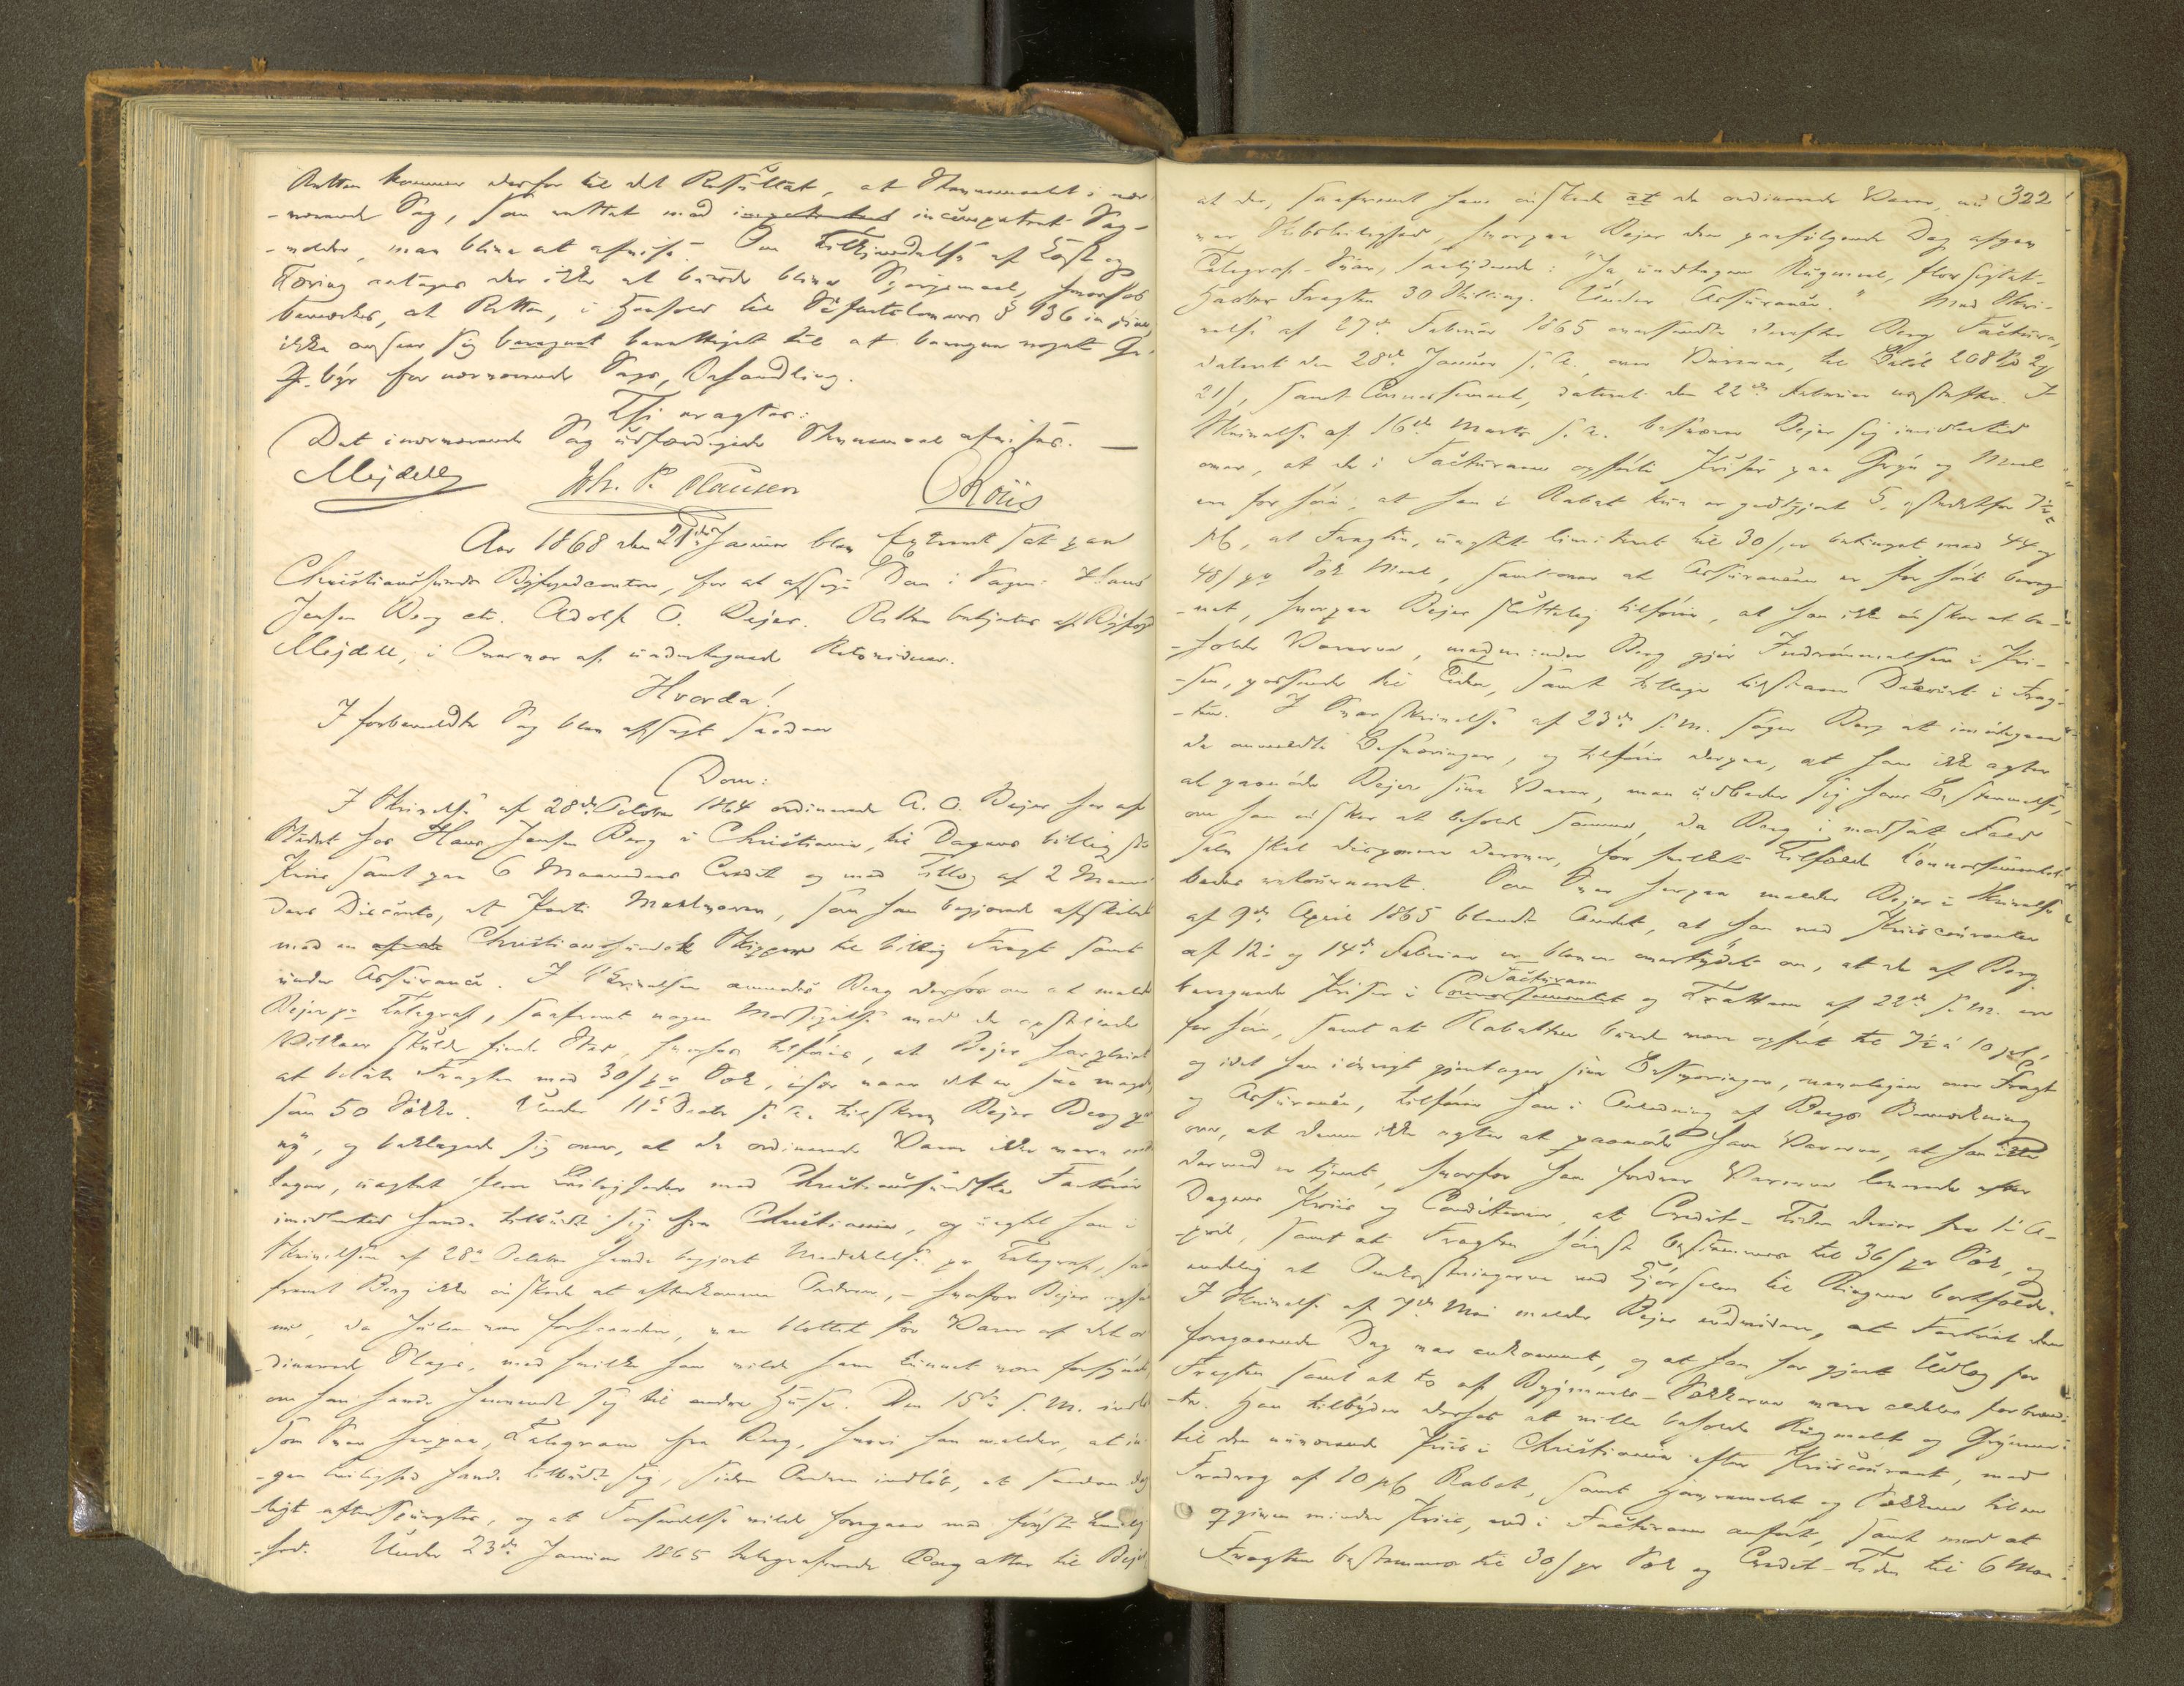 Retten kommer derfor til det Resultat, at Stevnemaalet i nær-
-værende Sag, som rettet mod incompetent Sag-
-volder, maa blive at afvise. Om Tilkjendelse af Kost og
Tæring antages der ikke at burde blive Spørgsmaal, hvorhos
bemærkes, at Retten, i Henhold til Søfartslovens § 136 in fine,
ikke anseer sig beregnet berettiget til at beregne noget Ge-
-byr for nærværende Sags Behandling.
Thi eragtes:
Det i nærværende Sag udfærdigede Stevnemaal afvises. —
Mejdell Joh. P. Clausen CRoiis
Aar 1868 den 21de Januar blev Extraret sat paa
Christianssunds Byfogedcontor, for at afsige Dom i Sagen: Hans
Jensen Berg ctr. Adolf O. Dejer. Retten betjentes af Byfoged
Mejdell, i Overvær af undertegnede Retsvidner.
Hvorda!
I forbemeldte Sag blev afsagt saadan
Dom:
I Skrivelse af 28de October 1864 ordinerede A. O. Dejer her af
Stedet hos Hans Jensen Berg i Christiania, til Dagens billigste
Priis samt paa 6 Maaneders Credit og med Tillæg af 2 Maane-
ders Disconto, et Parti Meelvarer, som han begjærede afskibet
med en Christianssundsk Skipper til billig Fragt samt
under Assurance. I Skrivelsen anmodes Berg derhos om at melde
Dejer pr Telegraf, saafremt nogen Modsigelse mod de opstillede
Vilkaar skulde finde Sted, hvorhos tilføies, at Dejer har pleiet
at betale Fragten med 30 s pr Sæk, især naar det er saa meget
som 50 Sække. Under 11te Decbr s. A. tilskrev Dejer Berg paa
ny, og beklagede sig over, at de ordinerede Varer ikke vare mod-
tagne, uagtet flere Leiligheder med Christianssundske Fartøier
imidlertid havde tilbudt sig fra Christiania, og uagtet han i
Skrivelsen af 28de October havde begjært Meddelelse pr Telegraf, saa-
fremt Berg ikke ønskede at efterkomme Ordren, – hvorfor Dejer ogsaa
nu, da Julen var forhaanden, var blottet for Varer af det or-
-dinerede Slags, med hvilke han vilde have kunnet være forsynet,
om han havde henvendt sig til andre Huse. Den 15de s. M. indløb
som Svar herpaa, Telegram fra Berg, hvori han melder, at in-
-gen Leilighed havde tilbudt sig, siden Ordren indløb, at saadan dag-
ligt efterspurgtes, og at Forsendelse vilde foregaae med første Leilig-
-hed. Under 23de Januar 1865 telegraferede Berg atter til Dejer,
322
at der, saafremt han ønskede de ordinerede Varer, nu
var Skibsleilighed, hvorpaa Dejer den paafølgende Dag afgav
Telegraf-Svar, saalydende: "Ja undtagen Rugmeel, flor sigtet
Høieste Fragten 30 Skilling. Under Assurance." Med Skri-
velse af 27de Februar 1865 oversendte derefter Berg Factura,
dateret den 28de Januar s. A., over Varerne, til Beløb 268 Spd 2 ort
21 s, samt Connossement, dateret den 22de Februar næstefter. I
Skrivelse af 16de Marts s. A. besværer Dejer sig imidlertid
over, at de i Facturaen opførte Priser paa Gryn og Meel
ere for høie, at han i Rabat kun er godtgjort 5, istedetfor 7½
pCt, at Fragten, uagtet limiteret til 30 s, er betinget med 44 og
48 s pr Sæk Meel, samt over at Assurancen er for høit bereg-
-net, hvorpaa Dejer sluttelig tilføier, at han ikke ønsker at be-
-holde Varerne, medmindre Berg gjør Indrømmelser i Pri-
-sen, passende til Tiden, samt tillige tilstaaer Decourt i Frag-
-ten. I Svarskrivelse af 23de s. M. søger Berg at imødegaae
de anmeldte Besværinger, og tilføier derpaa, at han ikke agter
at paanøde Dejer sine Varer, men udbeder sig hans Bestemmelse,
om han ønsker at beholde samme, da Berg i modsat Fald
selv skal disponere derover, for hvilket Tilfælde Connossementet
bedes returneret. Som Svar herpaa melder Dejer i Skrivelse
af 9de April 1865 blandt Andet, at han ved Priiscouranter
af 12te og 14de Februar er bleven overtydet om, at de af Berg
beregnede Priser i Connossementet Facturaen og Tratten af 22de s. M. ere
for høie, samt at Rabatten burde være opført til 7½ à 10 pCt,
og idet han iøvrigt gjentager sine Besværinger, navnligen over Fragt
og Assurance, tilføier han i Anledning af Bergs Bemærkning
om, at denne ikke agter at paanøde ham Varerne, at han ikke
dermed er tjent, hvorfor han fordrer Varerne leverede efter
Dagens Priis og Conditioner, at Credit-Tiden dateres fra 1ste A-
-pril, samt at Fragten høiest bestemmes til 36 s pr Sæk, og
endelig at Omkostningerne ved Kjørselen til Pipervigen bortfalder.
I Skrivelse af 7de Mai melder Dejer endvidere, at Fartøiet den
foregaaende Dag var ankommet, og at han har gjort Udlæg for
Fragten samt at to af Bygmeels-Sækkerne vare aldeles fordærve-
-de. Han tilbyder derhos at ville beholde Rugmelet og Grynene
til den nuværende Priis i Christiania efter Priiscourant, med
Fradrag af 10 pCt Rabat, samt Havremelet og Sækkene til en
opgiven mindre Priis, end i Facturaen anført, samt mod at
Fragten bestemmes til 30 s pr Sæk og Credit-Tiden til 6 Maa-